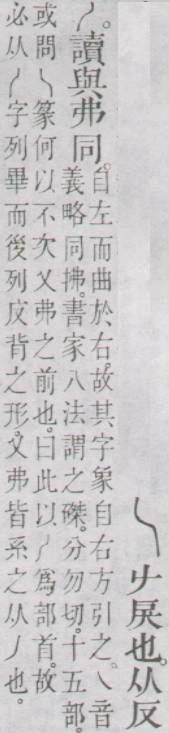 乀𠂇戾也。从反
丿。讀與弗同。
自左而曲於右。故其字象自右方引之。乀音
義略同拂。書家八法謂之磔。分勿切。十五部。
或問乀篆何以不次乂弗之前也。曰此以丿爲部首。故
必从丿字列畢而後列反背之形。乂弗皆系之从丿也。